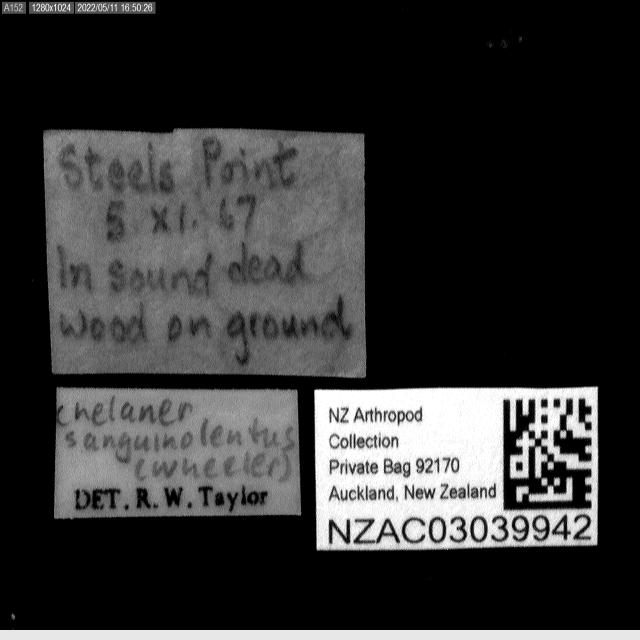 A152 1280x1024 2022/05/11 16:50:26
Steels Point
5 XI. 67
In sound dead
wood on ground
Chelaner
sanguinolentus
(wheeler)
DET. R. W. Taylor
NZ Arthropod
Collection
Private Bag 92170
Auckland, New Zealand
NZAC03039942